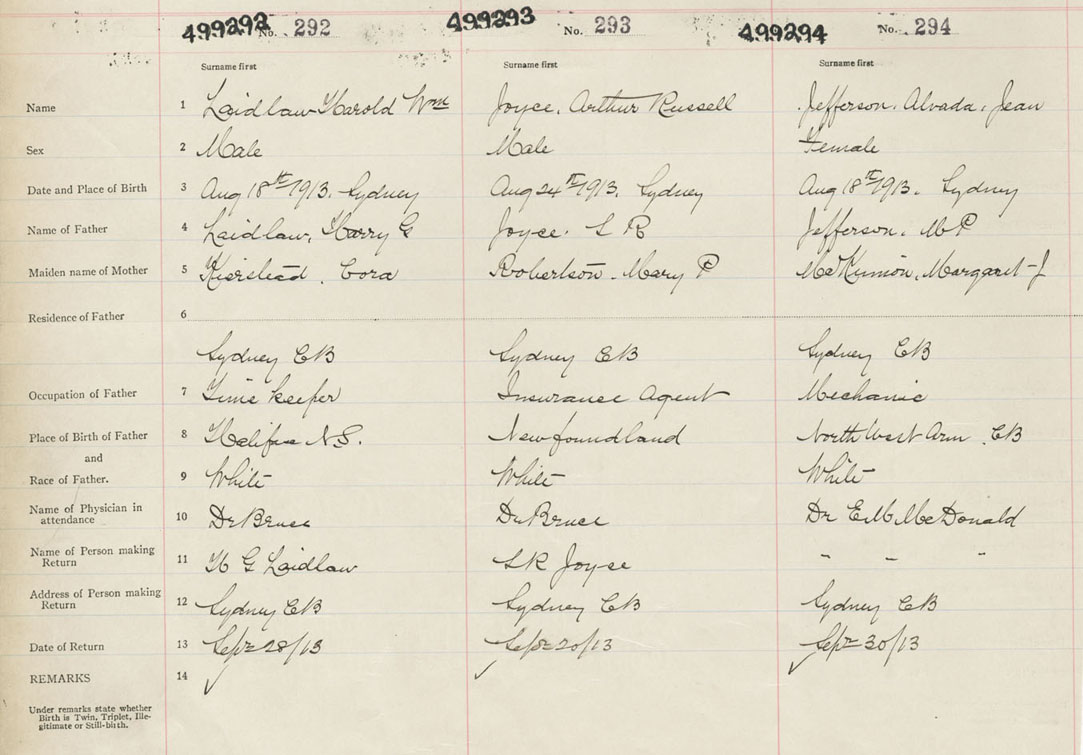 499292 No. 292 499293 No. 293 499294 No. 294
Surname first Surname first Surname first
Name 1 Laidlaw Harold Wm Joyce, Arthur Russell Jefferson, Alvada, Jean
Sex 2 Male Male Female
Date and Place of Birth 3 Aug 18th 1913. Sydney Aug 24th 1913. Sydney Aug 18th 1913. Sydney
Name of Father 4 Laidlaw, Harry G Joyce. S R Jefferson. M P
Maiden name of Mother 5 Kierstead, Cora Robertson. Mary P McKinnon, Margaret J
Residence of Father 6
Sydney CB Sydney CB Sydney CB
Occupation of Father 7 Time keeper Insurance Agent Mechanic
Place of Birth of Father 8 Halifax N.S. Newfoundland North West Arm. CB
and
Race of Father. 9 White White White
Name of Physician in
attendance 10 Dr Bruce Dr Bruce Dr E M McDonald
Name of Person making
Return 11 H G Laidlaw S R Joyce " " "
Address of Person making
Return 12 Sydney CB Sydney CB Sydney CB
Date of Return 13 Sept 28/13 Sept 20/13 Sept 30/13
REMARKS 14
Under remarks state whether
Birth is Twin, Triplet, Ille-
gitimate or Still-birth.